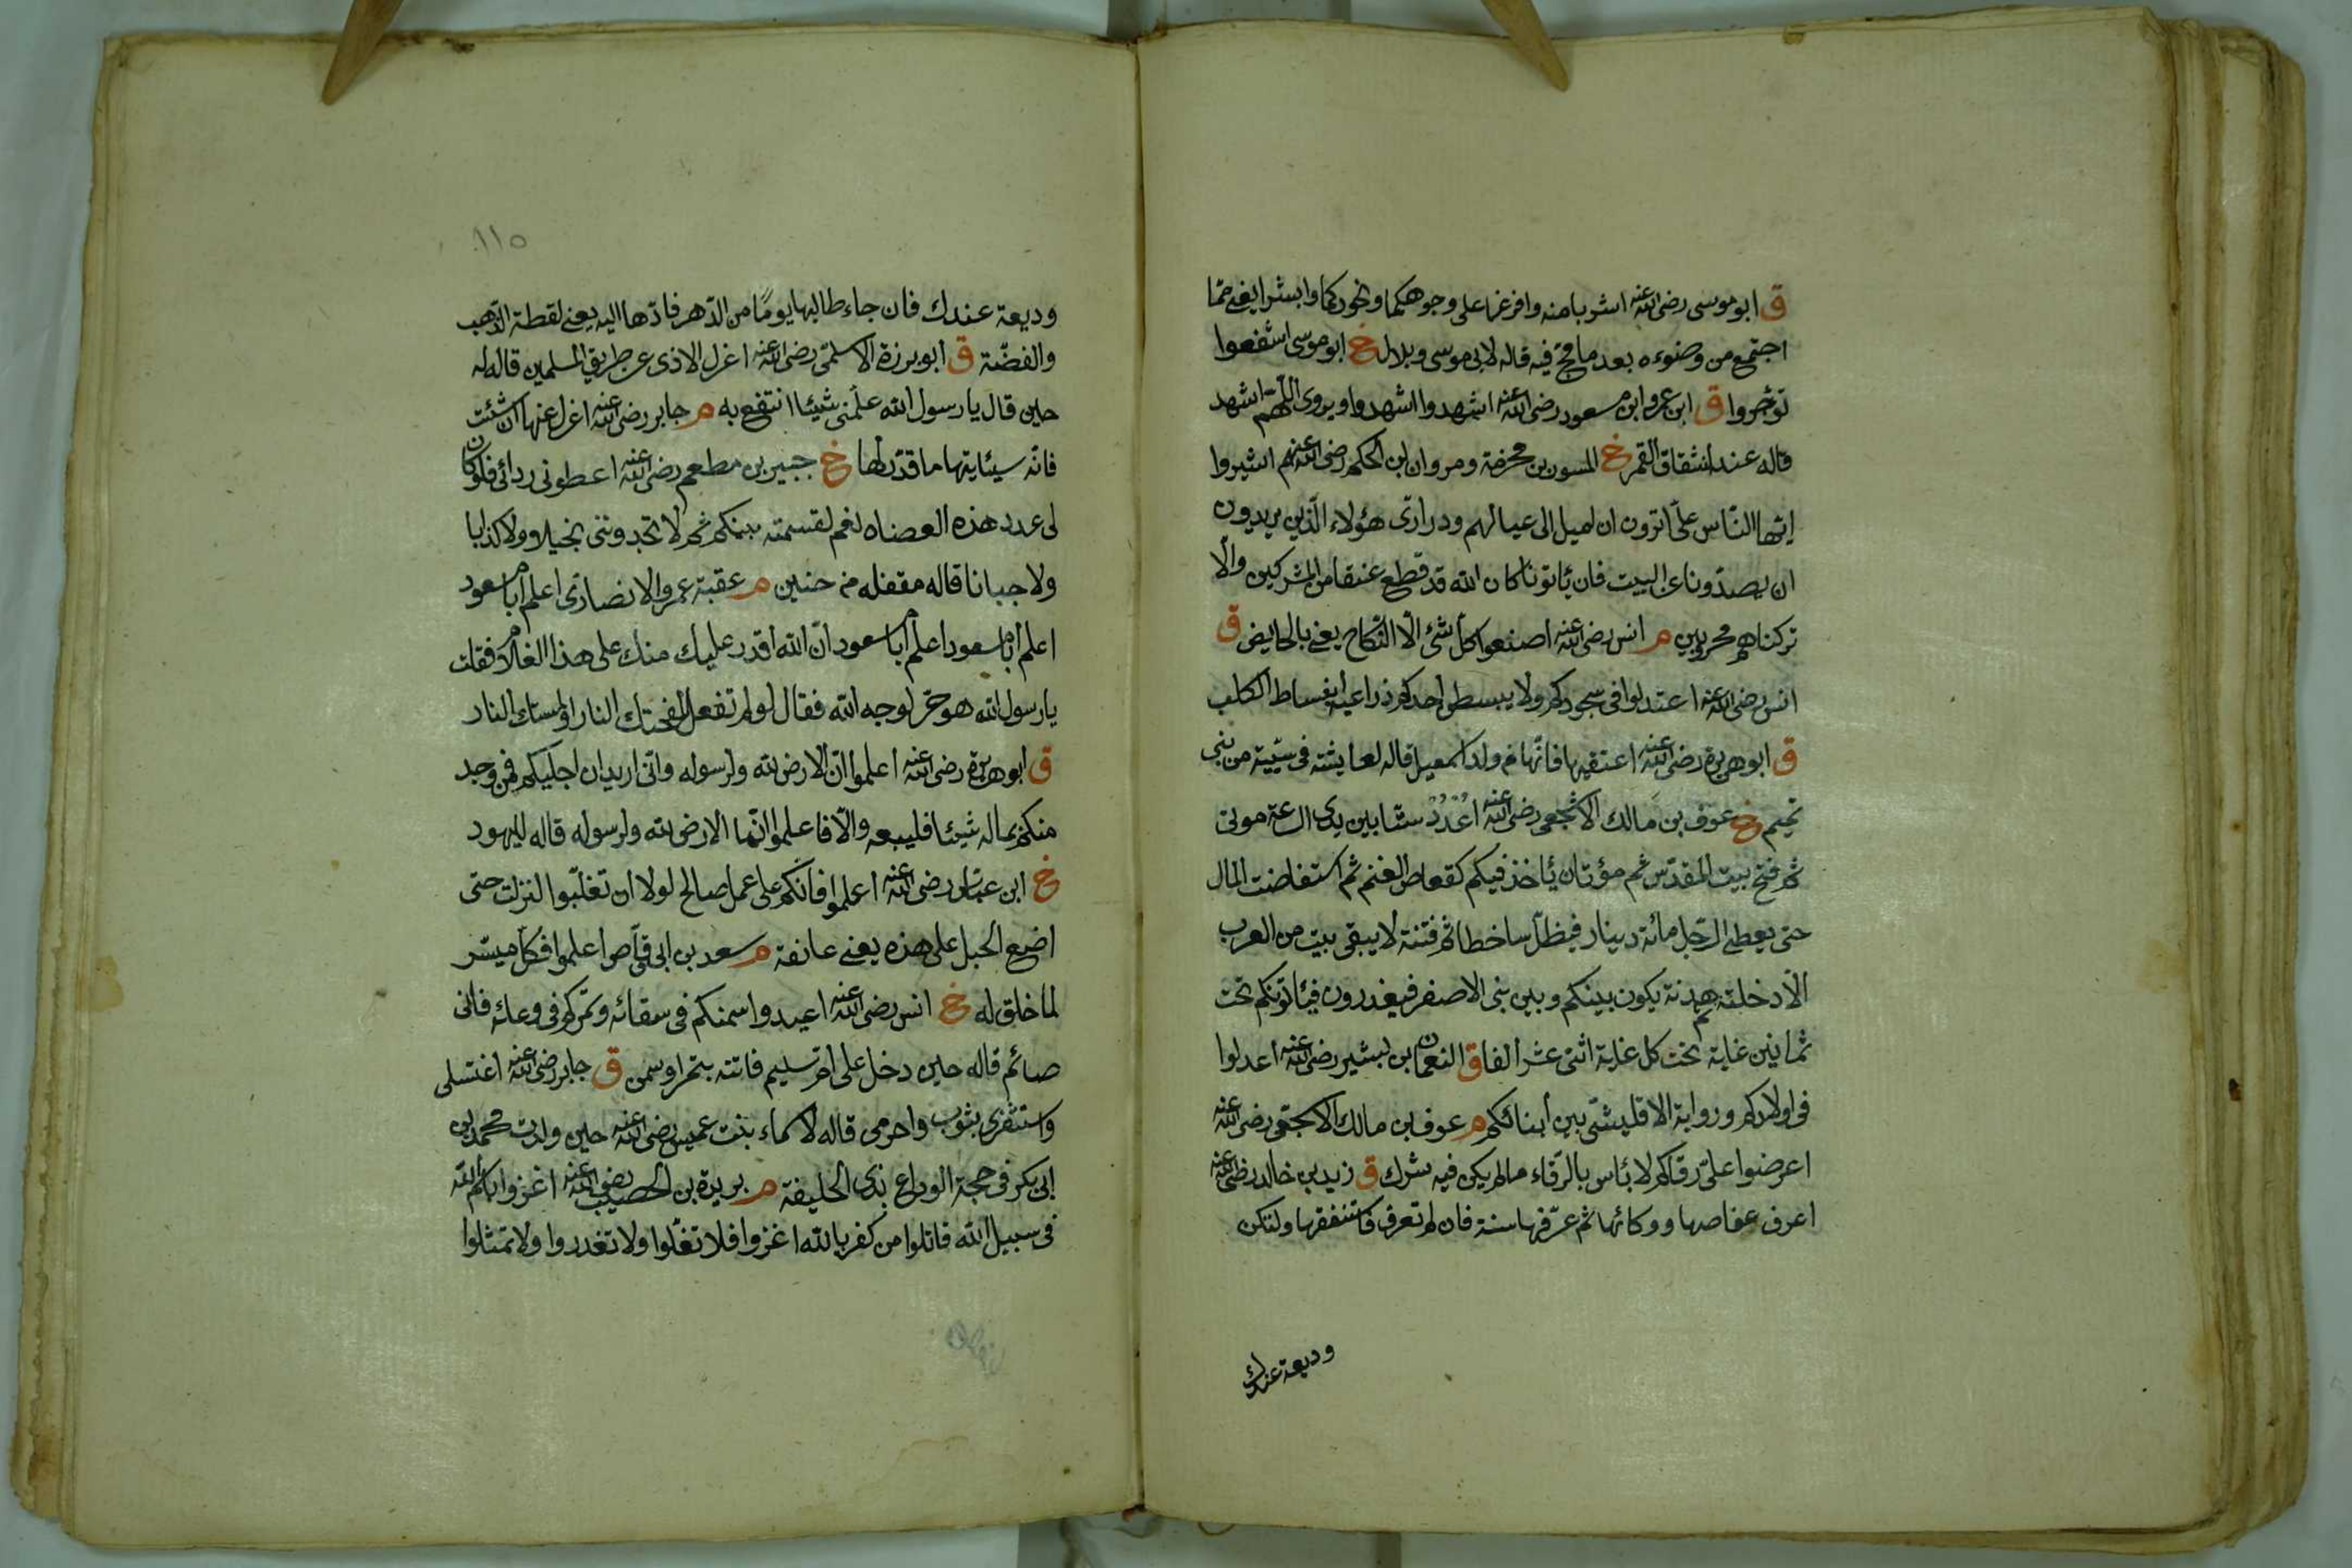 ق ابو موسى رضى الله عنه اشربا منه وافرغا على وجوهكما ونحوركما وابشرا يعنى مما
اجتمع من وضوءه بعد ما مج فيه قاله لابى موسى وبلال خ ابو موسى اشفعوا
توجروا ق ابن عمر وابن مسعود رضى الله عنه اشهدوا اشهدوا ويروى اللهم اشهد
قاله عند انشقاق القمر خ المسور بن مخرمة ومروان ابن الحكم رضى الله عنهم اشيروا
ايها الناس على اترون ان اميل الى عيالهم ودرارى هؤلاء الذين يريدون
ان يصدونا عن البيت فان يأتونا كان الله قد قطع عنقا من المشركين والا
تركناهم محروبين م انس رضى الله عنه اصنعوا كل شئ الا النكاح يعنى بالحايض ق
انس رضى الله عنه اعتدلوا فى سجودكم ولا يبسطن احدكم ذراعيه انبساط الكلب
ق ابو هريرة رضى الله عنه اعتقيها فانها من ولد اسمعيل قاله لعايشة فى سبية من بنى
تميم خ عوف بن مالك الاشجعى رضى الله عنه اعدد ستا بين يدى الساعة موتى
ثم فتح بيت المقدس ثم مؤتان يأخذ فيكم كقعاص الغنم ثم استفاضت المال
حتى يعطى الرجل مائة دينار فيظل ساخطا ثم فتنة لا يبقى بيت من العرب
الا دخلته ثم هدنة يكون بينكم وبين بنى الاصفر فيغدرون فيأتونكم تحت
ثمانين غاية تحت كل غاية اثنى عشر الفا ق النعمان بن بشير رضى الله عنه اعدلوا
فى اولادكم ورواية الاقليشى بين أبنائكم م عوف بن مالك الاشجعى رضى الله عنه
اعرضوا على رقاكم لا بأس بالرقاء ما لم يكن فيه شرك ق زيد بن خالد رضى الله عنه
اعرف عفاصها ووكائها ثم عرفها سنة فان لم تعرف فاستنفقها ولتكن
وديعة عندك
١١٥
وديعة عندك فان جاء طالبها يوما من الدهر فادها اليه يعنى لقطة الذهب
والفضة ق ابو برزة الاسلمى رضى الله عنه اعزل الاذى عن طريق المسلمين قاله له
حين قال يا رسول الله علمنى شيئا انتفع به م جابر رضى الله عنه اعزل عنها ان شئت
فانه سيئاتيها ما قدر لها خ جبير بن مطعم رضى الله عنه اعطونى ردائى فلو كان
لى عدد هذه العضاه نعم لقسمته بينكم ثم لا تجدوننى بخيلا ولا كذابا
ولا جبانا قاله مقفله من حنين م عقبة عمرو الانصارى اعلم أبا مسعود
اعلم أبا مسعود اعلم أبا مسعود ان الله اقدر عليك منك على هذا الغلام فقلت
يا رسول الله هو حر لوجه الله فقال لو لم تفعل لفحتك النار او لمستك النار
ق ابو هريرة رضى الله عنه اعلموا ان الارض لله ولرسوله وانى اريد ان اجليكم فمن وجد
منكم بماله شيئا فليبعه والا فاعلموا انما الارض لله ولرسوله قاله لليهود
خ ابن عباس رضى الله عنه اعملوا فانكم على عمل صالح لولا ان تغلبوا لنزلت حتى
اضع الحبل على هذه يعنى عاتقه م سعد بن ابى وقاص اعملوا فكل ميسر
لما خلق له خ انس رضى الله عنه اعيدوا سمنكم فى سقائه وتمركم فى وعائه فانى
صائم قاله حين دخل على ام سليم فاتته بتمر وسمن ق جابر رضى الله عنه اغتسلى
واستثفرى بثوب واحرمى قاله لاسماء بنت عميس رضى الله عنه حين ولدت محمد بن
ابى بكر فى حجة الوداع بذى الحليفة م بريدة بن الحصيب رضى الله عنه اغزوا باسم الله
فى سبيل الله قاتلوا من كفر بالله اغزوا فلا تغلوا ولا تغدروا ولا تمثلوا